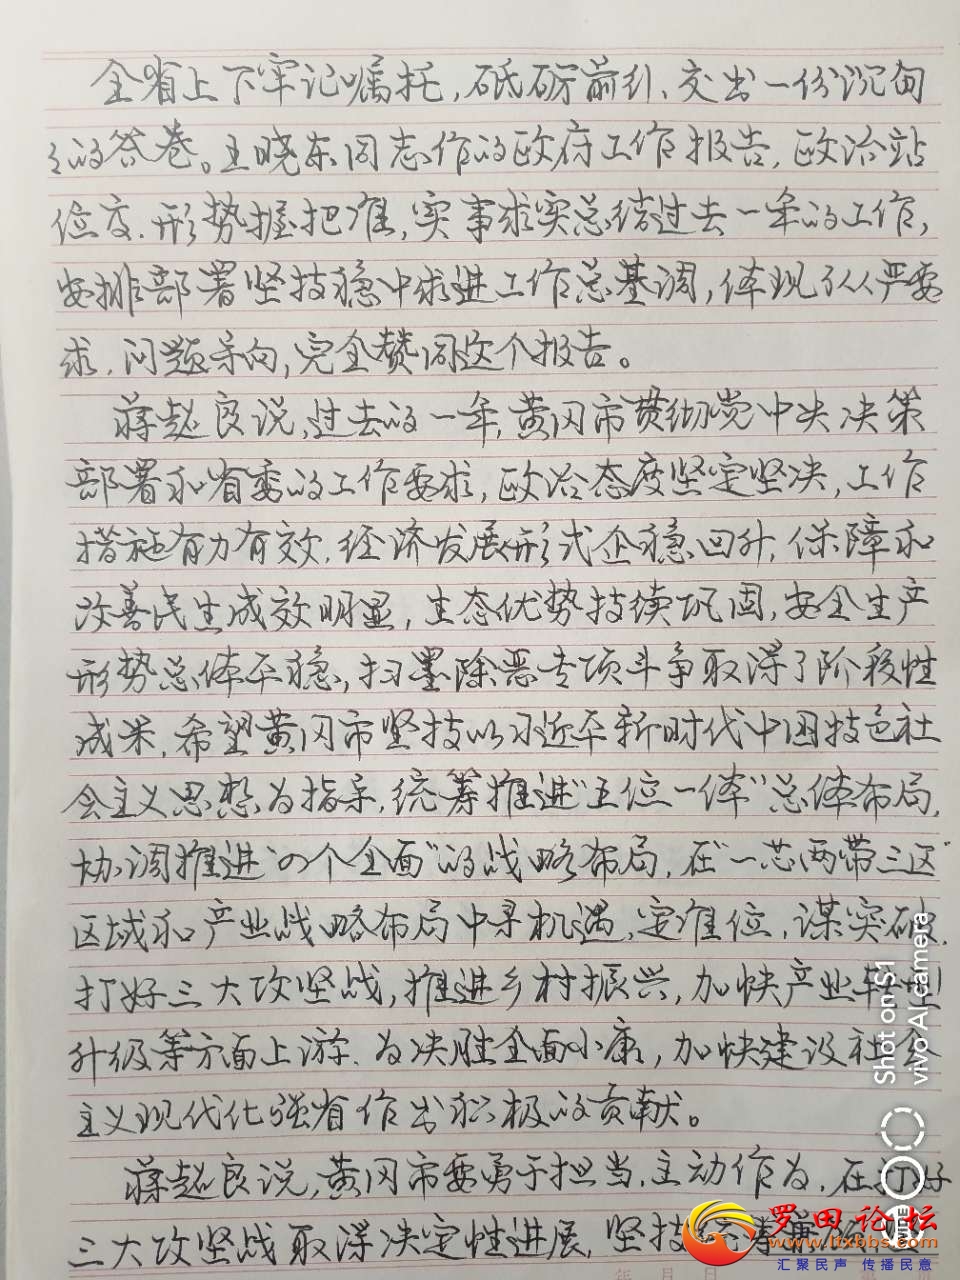 全省上下牢记嘱托，砥砺前行、交出一份沉甸
甸的答卷。王晓东同志作的政府工作报告，政治站
位高、形势握把准，实事求实总结过去一年的工作，
安排部署坚持稳中求进工作总基调，体现了从严要
求、问题导向，完全赞同这个报告。
蒋超良说，过去的一年，黄冈市贯彻党中央决策
部署和省委的工作要求，政治态度坚定坚决，工作
措施有力有效，经济发展形式企稳回升，保障和
改善民生成效明显，生态优势持续巩固，安全生产
形势总体平稳，扫黑除恶专项斗争取得了阶段性
成果，希望黄冈市坚持以习近平新时代中国特色社
会主义思想为指导，统筹推进"五位一体"总体布局，
协调推进"四个全面"的战略布局，在"一芯两带三区"
区域和产业战略布局中寻机遇，定准位，谋突破，
打好三大攻坚战，推进乡村振兴，加快产业转型
升级等方面上游，为决胜全面小康，加快建设社会
主义现代化强省作出积极的贡献。
蒋超良说，黄冈市要勇于担当，主动作为，在打好
三大攻坚战取得决定性进展，坚持统筹
年 月 日
Shot on S1
vivo AI camera
罗田论坛
www.ltxbbs.com
汇聚民声 传播民意